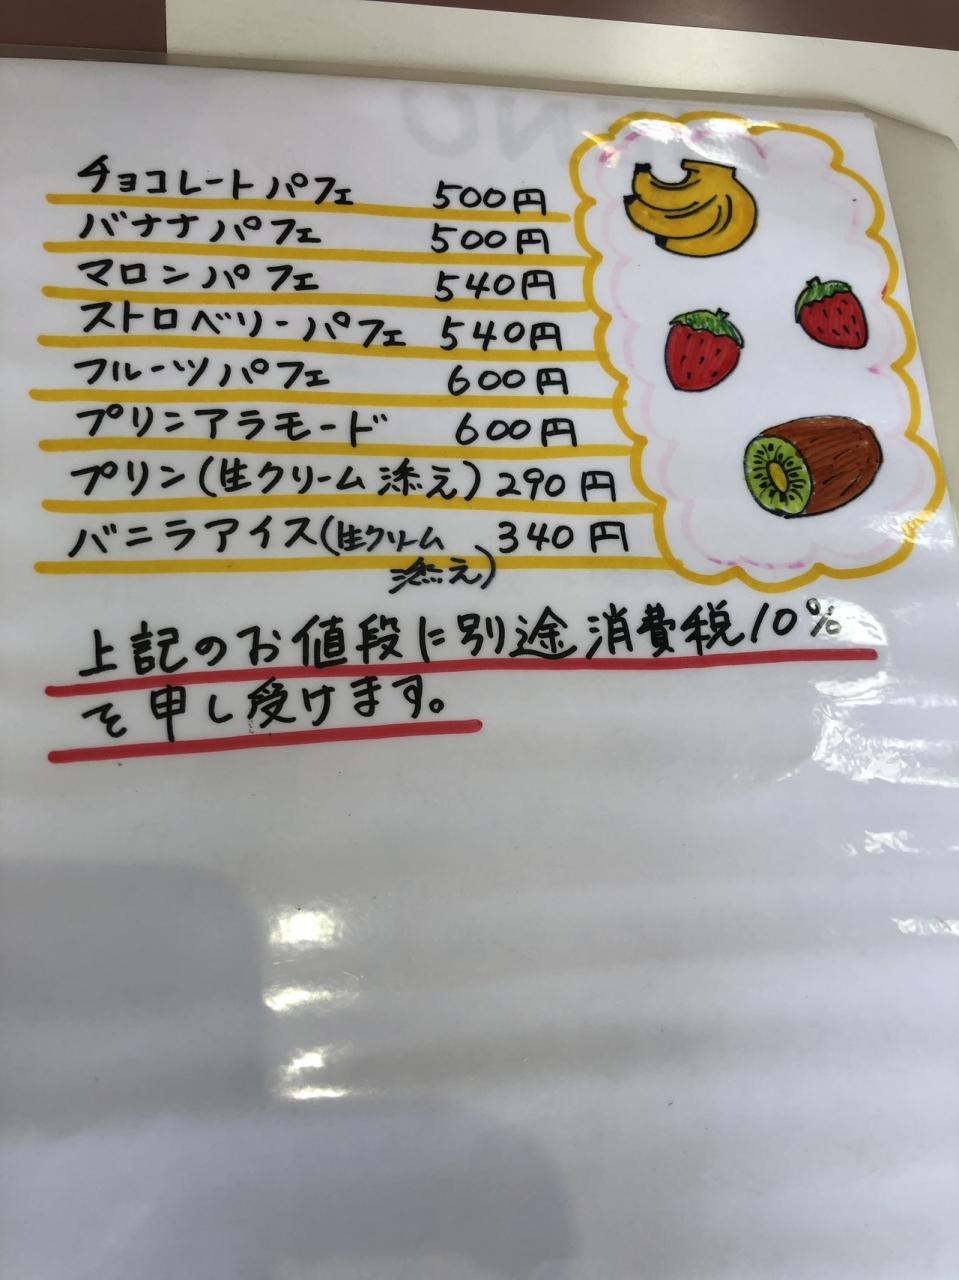 チョコレートパフェ 500円
バナナパフェ 500円
マロンパフェ 540円
ストロベリーパフェ 540円
フルーツパフェ 600円
プリンアラモード 600円
プリン(生クリーム添え) 290円
バニラアイス(生クリーム 340円
添え)
上記のお値段に別途消費税10%
を申し受けます。